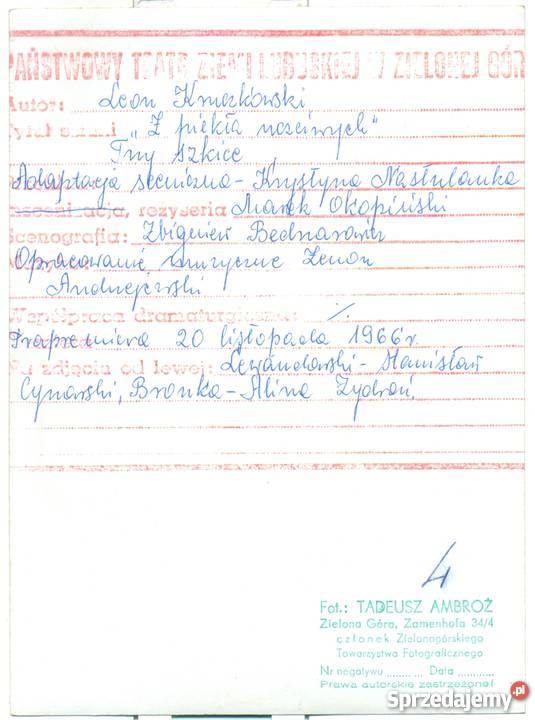 PAŃSTWOWY TEATR ZIEMI LUBUSKIEJ W ZIELONEJ GÓR
Autor: Leon Kruczkowski
Tytuł sztuki „Z piekła rodem
Trzy szkice
Adaptacja sceniczna - Krystyna Nastulanka
Inscenizacja, reżyseria Marek Okopiński
Scenografia: Zbigniew Bednarowicz
Opracowanie muzyczne Zenon
Andrzejewski
Współpraca dramaturgiczna: -/-
Prapremiera 20 listopada 1966 r.
Na zdjęciu od lewej: Lewandowski - Stanisław
Cynarski, Bronka - Alina Zydroń
4
Fot.: TADEUSZ AMBROŻ
Zielona Góra, Zamenhofa 34/4
członek Zielonogórskiego
Towarzystwa Fotograficznego
Nr negatywu ............ Data ............
Prawa autorskie zastrzeżone!
Sprzedajemy.pl